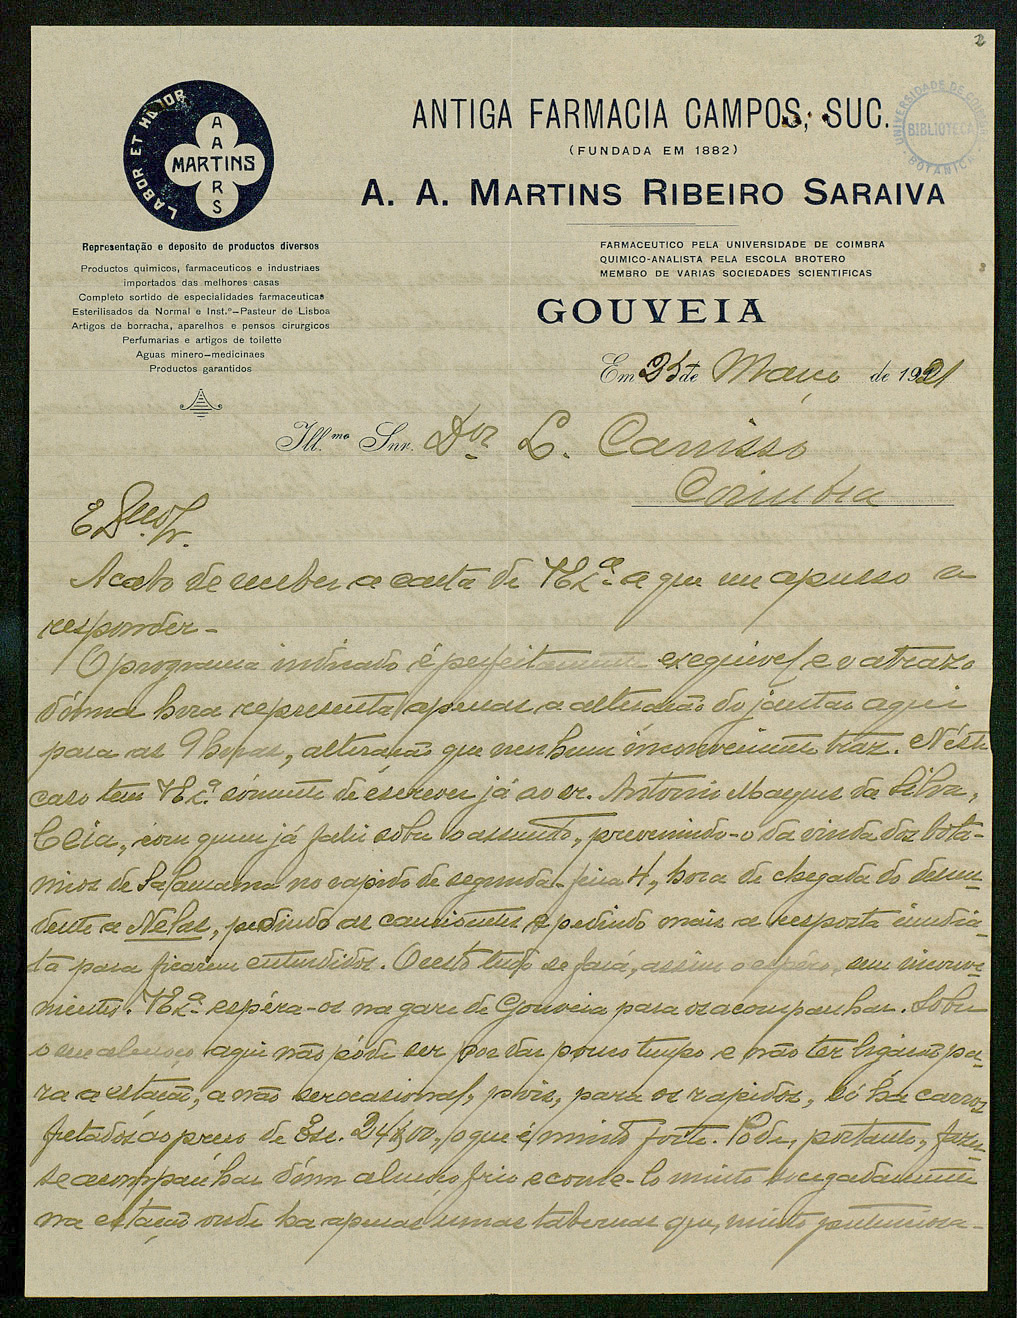 2
LABOR ET HONOR
A A MARTINS R S
ANTIGA FARMACIA CAMPOS, SUC.
(FUNDADA EM 1882)
A. A. MARTINS RIBEIRO SARAIVA
UNIVERSIDADE DE COIMBRA
BIBLIOTECA
BOTANICA
Representação e deposito de productos diversos
Productos quimicos, farmaceuticos e industriaes
importados das melhores casas
Completo sortido de especialidades farmaceuticas
Esterilisados da Normal e Inst.º—Pasteur de Lisboa
Artigos de borracha, aparelhos e pensos cirurgicos
Perfumarias e artigos de toilette
Aguas minero—medicinaes
Productos garantidos
FARMACEUTICO PELA UNIVERSIDADE DE COIMBRA
QUIMICO-ANALISTA PELA ESCOLA BROTERO
MEMBRO DE VARIAS SOCIEDADES SCIENTIFICAS
GOUVEIA
Em 25 de Março de 1921
Ill.mo Snr. Dor L. Carrisso
Coimbra
Acabo de receber a carta de V. Ex.ª a que me apresso a
responder-
O programa indicado é perfeitamente exequivel e o atrazo
d'uma hora representa apenas a alteração do jantar aqui
para as 9 horas, alteração que nenhum inconveniente traz. Néste
caso tem V. Ex.ª sómente de escrever já ao sr. Antonio Marques da Silva,
Ceia, com quem já falei sobre o assunto, prevenindo-o da vinda dos bota-
nicos de Salamanca no rapido de segunda-feira 4, hora de chegada do descen-
dente a Nelas, pedindo as camionetes e pedindo mais a resposta imedia-
ta para ficarem entendidos. O resto tudo se fará, assim o espero, sem inconve-
nientes. V. Ex.ª espéra-os na gare de Gouveia para os acompanhar. Sobre
o seu almoço aqui não póde ser por dar pouco tempo e não ter ligação pa-
ra a estação, a não ser ocasional, pois, para os rapidos, só ha carros
fretados ao preço de Esc. 24$00, o que é muito forte. Póde, portanto, fazer-
se acompanhar d'um almoço frio e come-lo muito socegadamente
na estação onde ha apenas umas tabernas que, muito